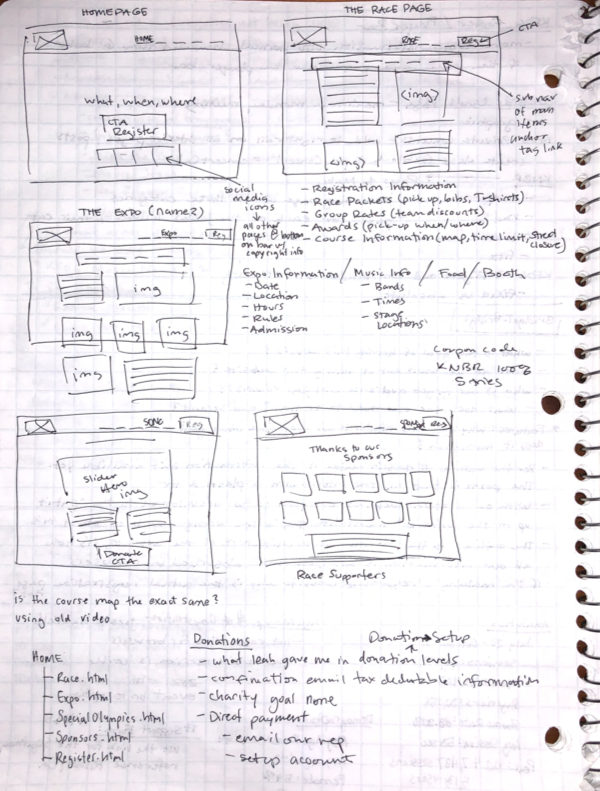 HOMEPAGE
HOME
what, when, where
CTA
Register
social
media
icons
all other
pages @ bottom
on bar w/
copyright info
THE RACE PAGE
RACE
Regis
CTA
<img>
<img>
sub nav
of main
items
anchor
tag link
- Registration Information
- Race Packets (pick up, bibs, T-shirts)
- Group Rates (team discounts)
- Awards (pick-up when/where)
- course Information (map, time limit, street
closure)
THE EXPO (name?)
Expo
Reg
img
img
img
img
img
Expo Information / Music Info / Food / Booth
- Date
- Location
- Hours
- Rules
- Admission
- Bands
- Times
- Stage
Locations
Coupon code
KNBR 100%
5 series
SONC
Reg
Slider
Hero
img
Donate
CTA
Reg
Thanks to our
Sponsors
Race Supporters
is the course map the exact same?
using old video
HOME
- Race.html
- Expo.html
- Special Olympics.html
- Sponsors.html
- Register.html
Donations
Donation setup
- what leah gave me in donation levels
- confination email tax dedutable information
- charity goal none
- Direct payment
- email our rep
- setup account